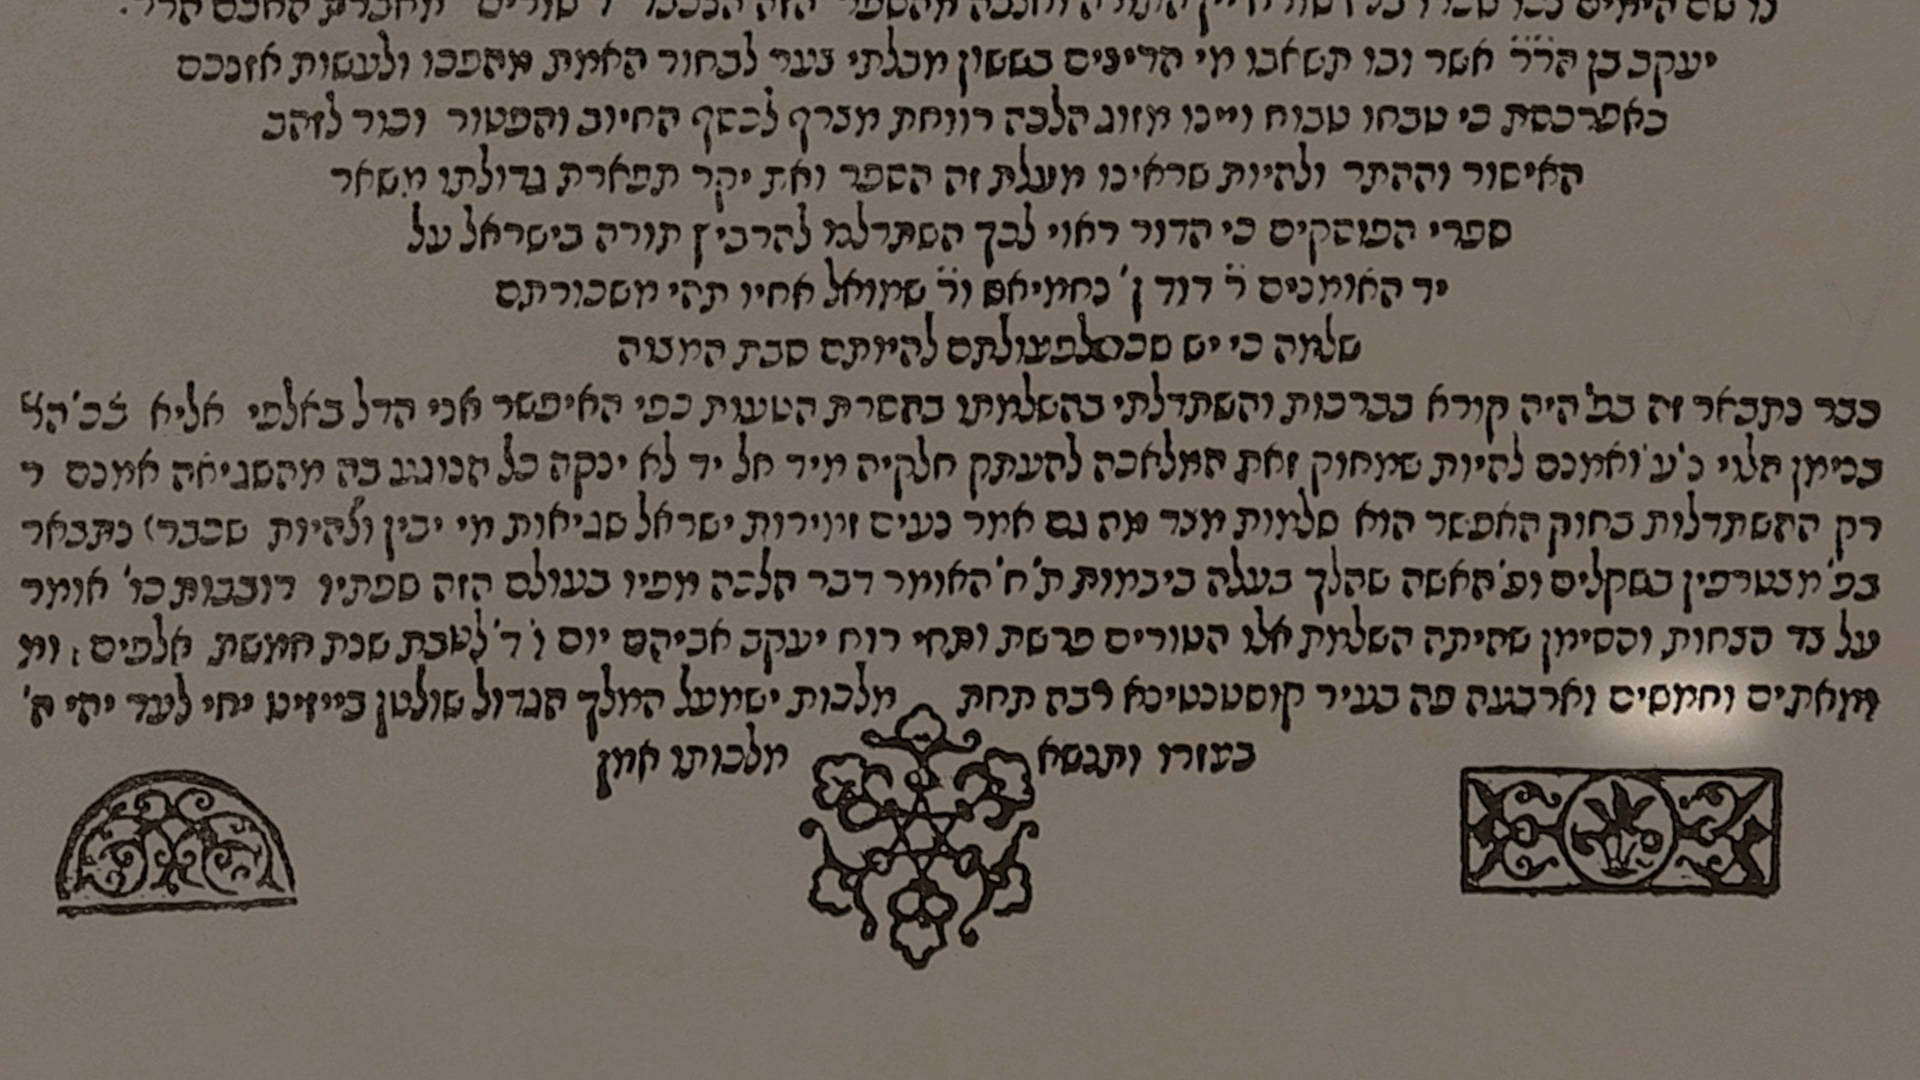 יעקב בן הרר אשר ובו תשאבו מי הדינים בששון מבלתי צער לבחור האמת מהפכו ולעשות אזנכם
כאפרכסת כי טבחו טבוח ויינו מזוג הלכה רווחת מצרף לכסף החיוב והפטור וכור לזהב
האיסור וההתר ולהיות שראינו מעלת זה הספר ואת יקר תפארת גדולתו משאר
ספרי הפוסקים כי הדור ראוי לכך השתדלנו להרביץ תורה בישראל על
יד האומנים ר דוד ן' נחמיאס ור שמואל אחיו תהי משכורתם
שלמה כי יש שכר לפעולתם להיותם סבת המצוה
כבר נתבאר זה בפ' היה קורא בברכות והשתדלתי בהשלמתו בהסרת הטעות כפי האיפשר אני הדל באלפי אליא
בנימן הלוי נ'ע' ואמנם להיות שמחוק זאת המלאכה להעתק חלקיה מיד אל יד לא ינקה כל הנוגע בה מהשגיאה אמנם
רק ההשתדלות בחוק האפשר הוא סלמות מצד מה גם אמר נעים זמירות ישראל שגיאות מי יבין ולהיות שכבר נתבאר
בפ' מצטרפין בשקלים ופ' האשה שהלך בעלה ביבמות ת'ח' האומר דבר הלכה מפיו בעולם הזה שפתיו דובבות כו' אומר
על כד הנחות והסימן שהיתה השלמת אלו הטורים פרשת ותחי רוח יעקב אביהם יום ו' ד' לטבת שנת חמשת אלפים
ומאתים וחמשים וארבעה פה בעיר קוסטנטינא רבה תחת מלכות ישמעל המלך הגדול שולטן בייזיט יחי לעד יהי ה'
בעזרו ותנשא מלכותו אמן